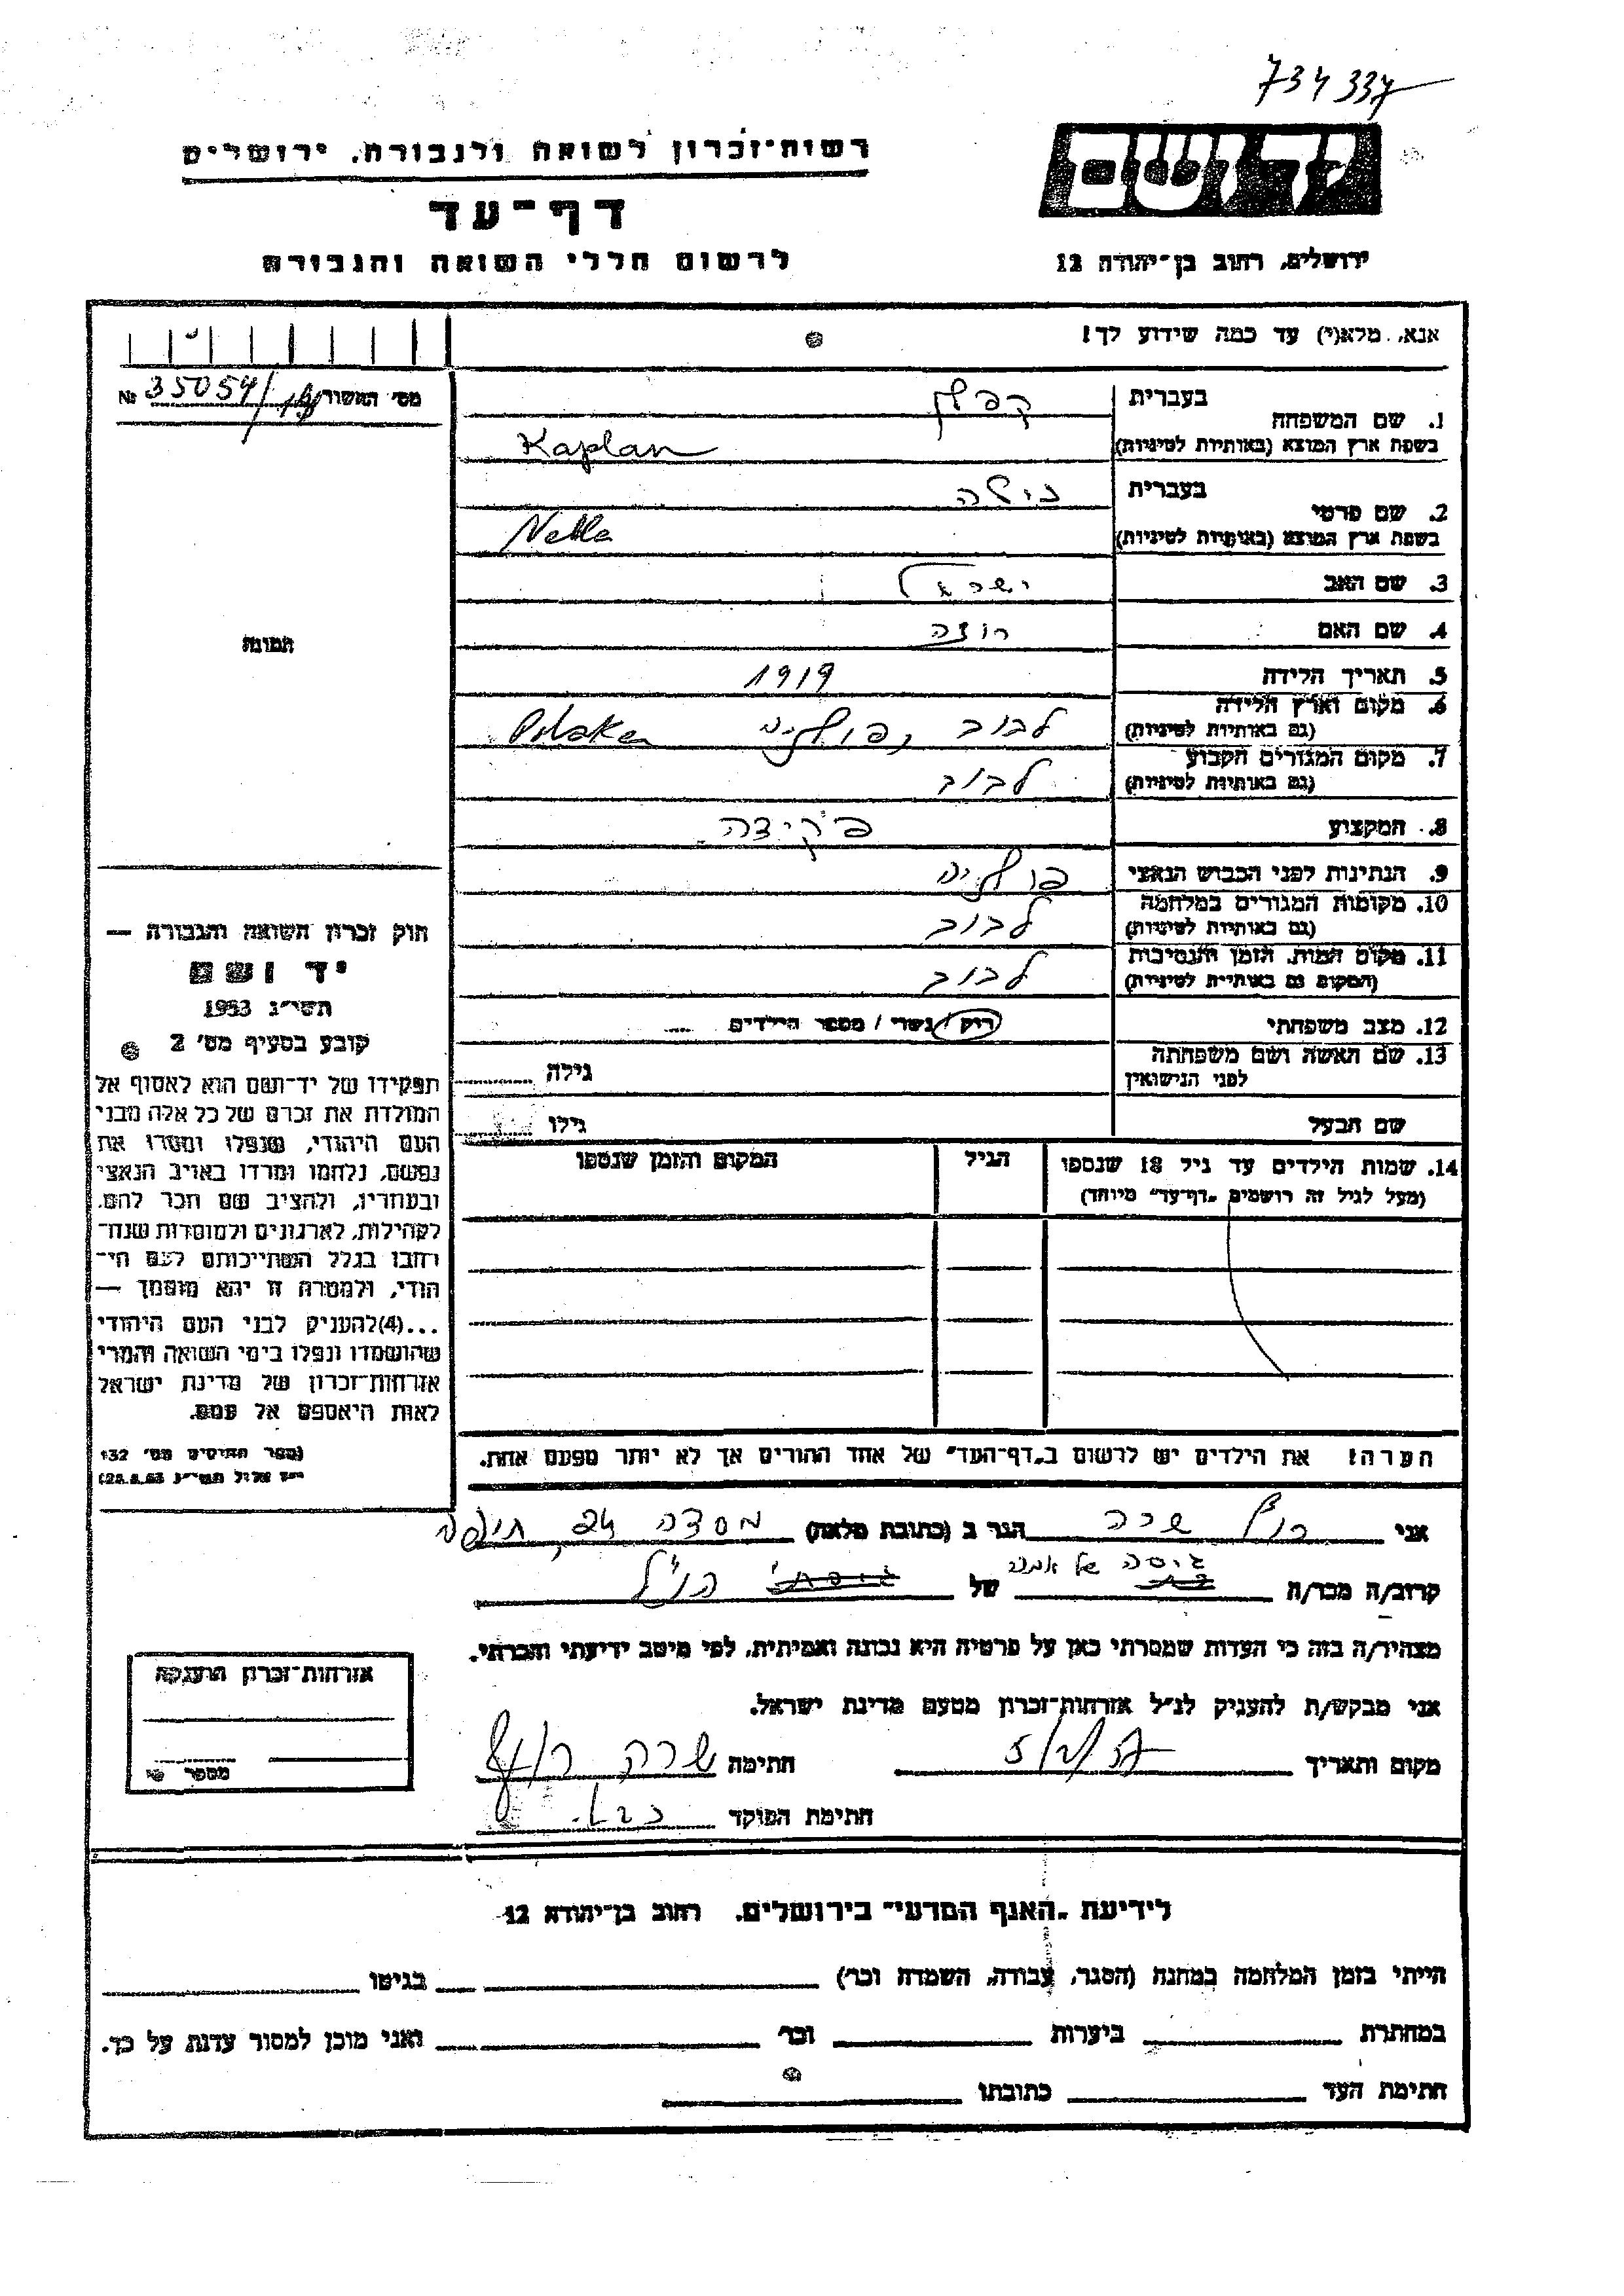 734337
רשות־זכרון לשואה ולגבורה, ירושלים
יד ושם
דף־עד
לרשום חללי השואה והגבורה
ירושלים, רחוב בן־יהודה 12
אנא, מלא(י) עד כמה שידוע לך!
מס׳ האשור
№ 35054/
1. שם המשפחה
בעברית קפלן
בשפת ארץ המוצא (באותיות לטיניות) Kaplan
2. שם פרטי
בעברית נילה
בשפת ארץ המוצא (באותיות לטיניות) Nella
3. שם האב ישראל
4. שם האם רוזה
תמונה
5. תאריך הלידה 1919
6. מקום וארץ הלידה
(גם באותיות לטיניות) לבוב, פולניה Polska
7. מקום המגורים הקבוע
(גם באותיות לטיניות) לבוב
8. המקצוע פקידה
9. הנתינות לפני הכבוש הנאצי פולניה
10. מקומות המגורים במלחמה
(גם באותיות לטיניות) לבוב
11. מקום המות, הזמן והנסיבות
(המקום גם באותיות לטיניות) לבוב
12. מצב משפחתי רוק / נשוי / מספר הילדים
13. שם האשה ושם משפחתה
לפני הנישואין גילה
שם הבעל גילו
14. שמות הילדים עד גיל 18 שנספו הגיל המקום והזמן שנספו
(מעל לגיל זה רושמים „דף־עד״ מיוחד)
חוק זכרון השואה והגבורה —
יד ושם
תשי״ג 1953
קובע בסעיף מס׳ 2
תפקידו של יד־ושם הוא לאסוף אל
המולדת את זכרם של כל אלה מבני
העם היהודי, שנפלו ומסרו את
נפשם, נלחמו ומרדו באויב הנאצי
ובעוזריו, ולהציב שם וזכר להם,
לקהילות, לארגונים ולמוסדות שנח־
רבו בגלל השתייכותם לעם הי־
הודי, ולמטרה זו יהא מוסמך —
...(4)להעניק לבני העם היהודי
שהושמדו ונפלו בימי השואה והמרי
אזרחות־זכרון של מדינת ישראל
לאות היאספם אל עמם.
(ספר החוקים מס׳ 132
י״ז אלול תשי״ג 28.8.53)
הערה! את הילדים יש לרשום ב„דף־העד״ של אחד ההורים אך לא יותר מפעם אחת.
אני שרה הגר ב (כתובת מלאה) מסדה 24, חיפה
קרוב/ה מכר/ה גיסה של אמה של הנ״ל
מצהיר/ה בזה כי העדות שמסרתי כאן על פרטיה היא נכונה ואמיתית, לפי מיטב ידיעתי והכרתי.
אני מבקש/ת להעניק לנ״ל אזרחות־זכרון מטעם מדינת ישראל.
מקום ותאריך 5/2/57 חתימה שרה
חתימת הפוקד
אזרחות־זכרון הוענקה
מספר
לידיעת „האגף המדעי״ בירושלים, רחוב בן־יהודה 12
הייתי בזמן המלחמה במחנה (הסגר, עבודה, השמדה וכר׳) בגיטו
במחתרת ביערות וכר׳ ואני מוכן למסור עדות על כך.
חתימת העד כתובתו